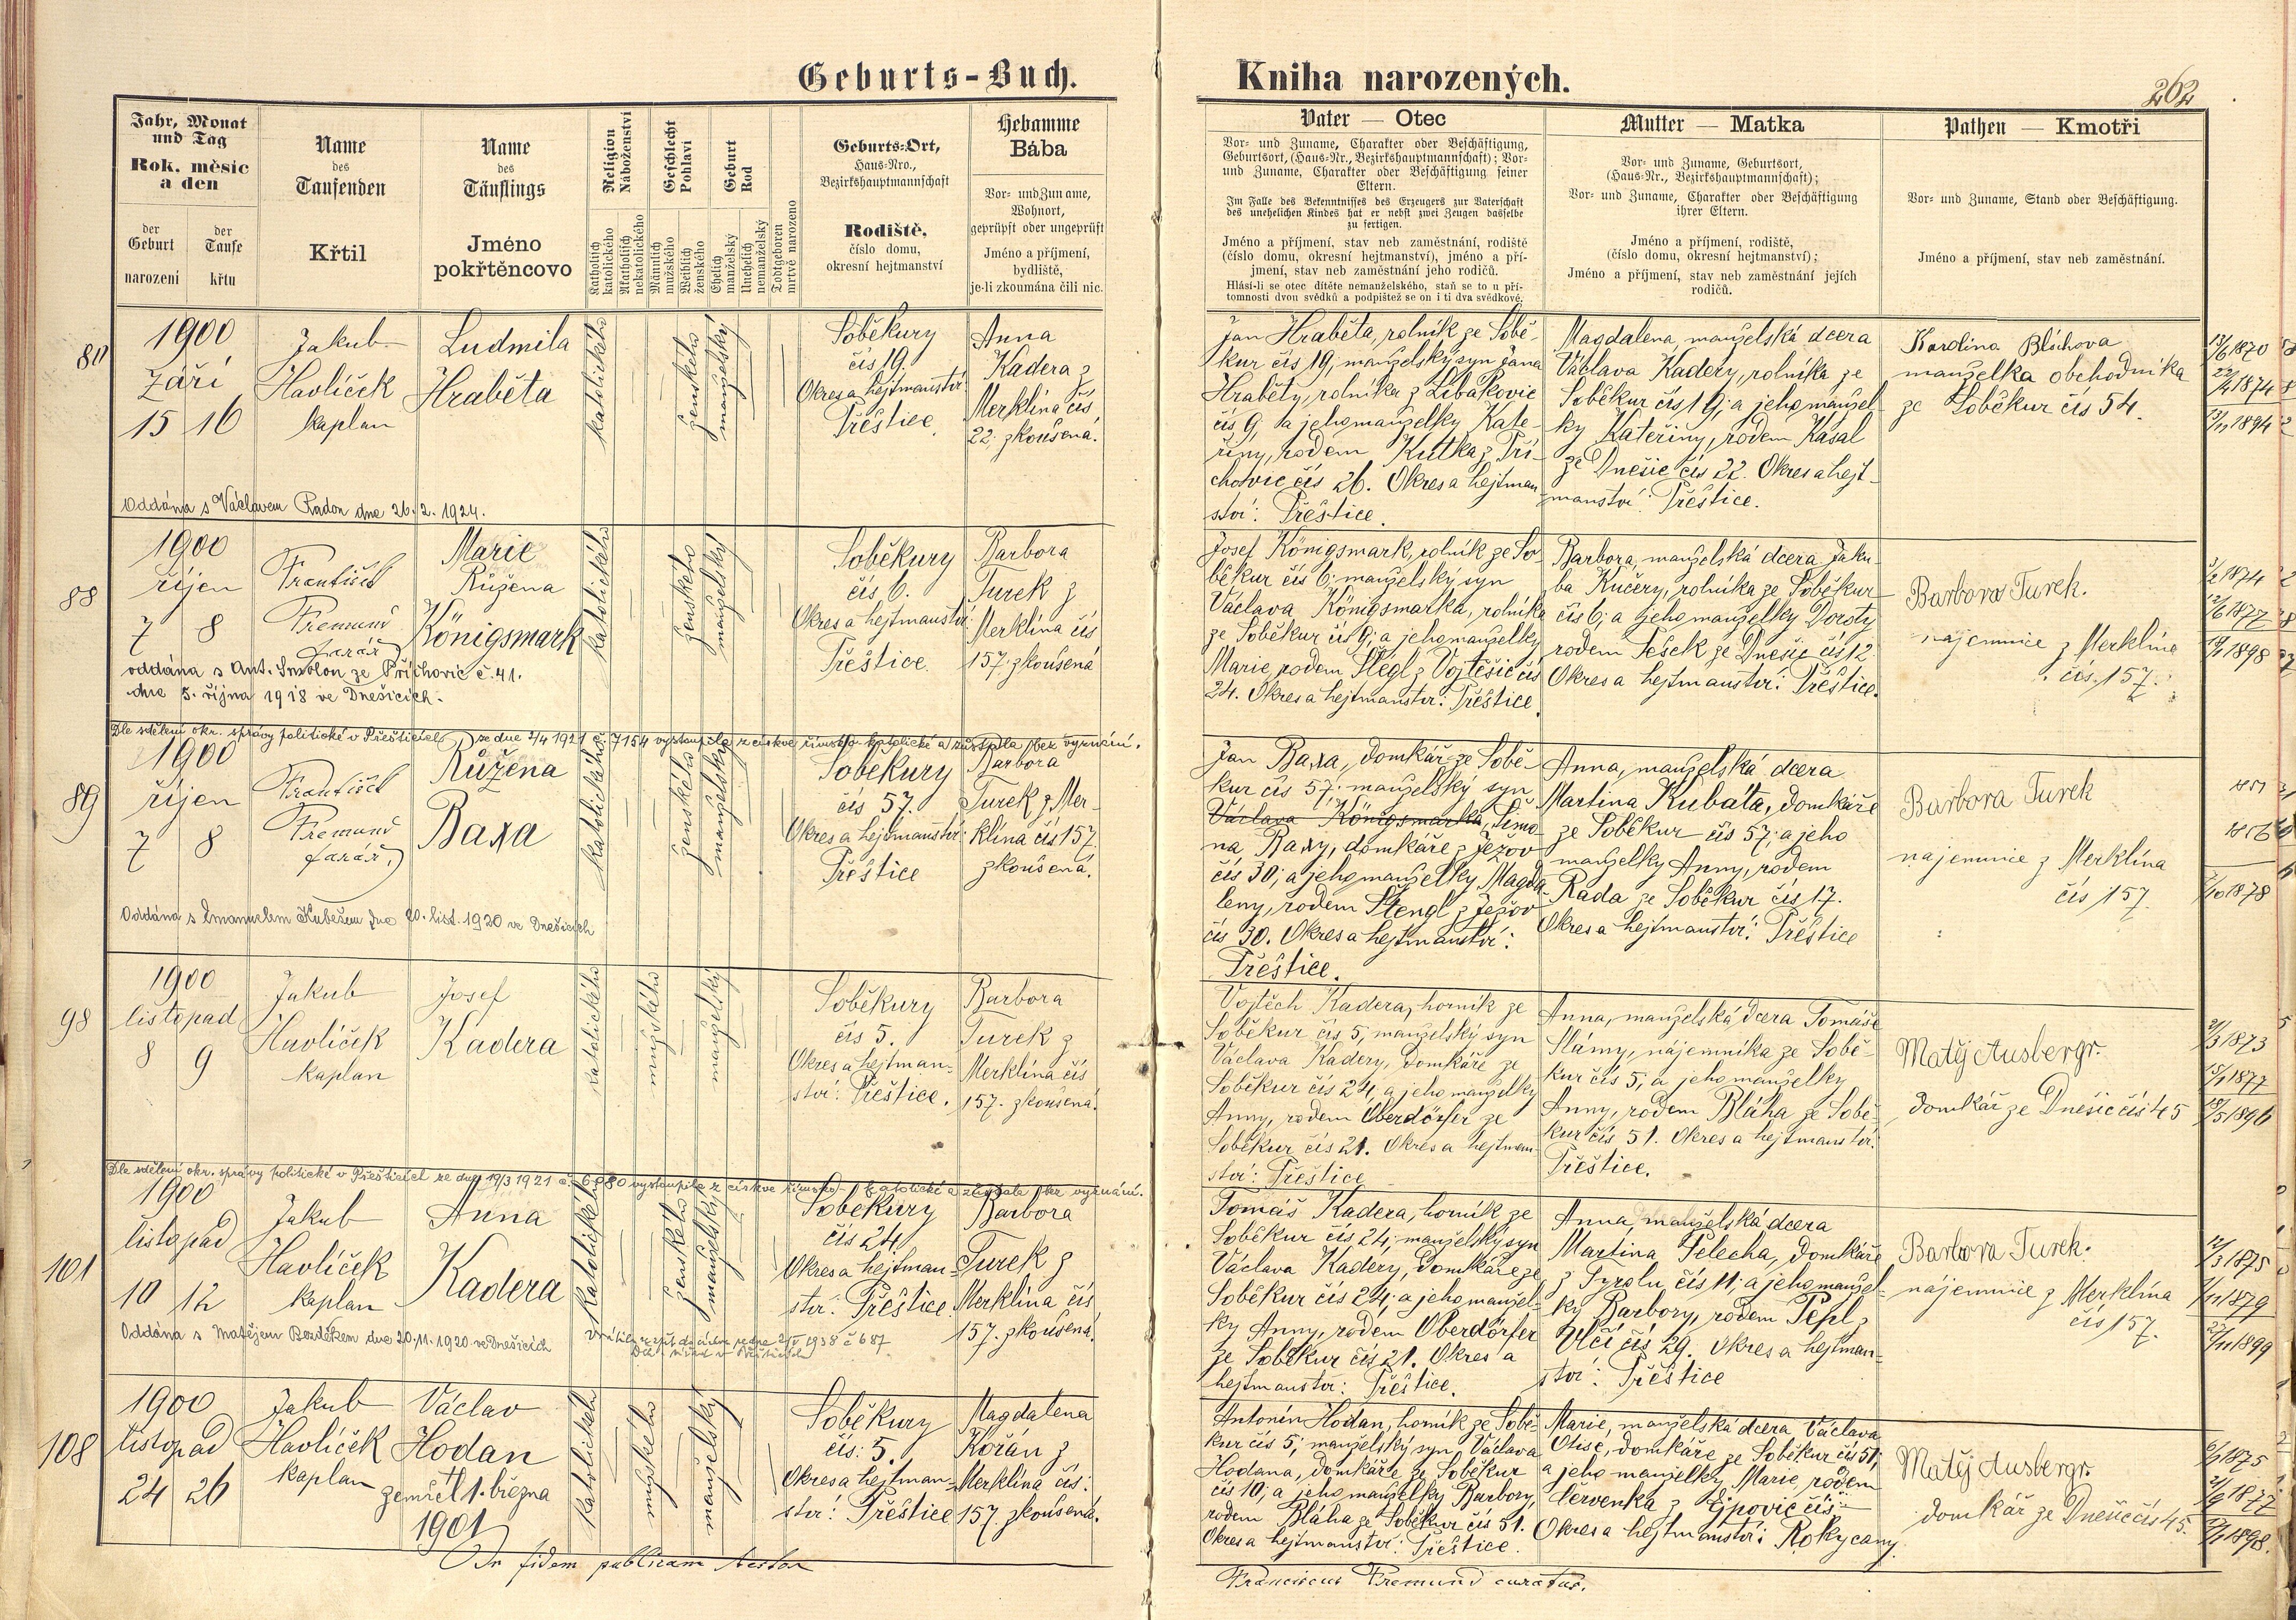 Geburts-Buch.
Kniha narozených.
262
Jahr, Monat
und Tag
Rok. měsíc
a den
der
Geburt
narození
der
Taufe
křtu
Name
des
Taufenden
Křtil
Name
des
Täuflings
Jméno
pokřtěncovo
Religion
Náboženství
Katholisch
katolického
Akatholisch
nekatolického
Geschlecht
Pohlaví
Männlich
mužského
Weiblich
ženského
Geburt
Rod
Ehelich
manželský
Unehelich
nemanželský
Todtgeboren
mrtvě narozeno
Geburts-Ort,
Haus-Nro.,
Bezirkshauptmannschaft
Rodiště,
číslo domu,
okresní hejtmanství
Hebamme
Bába
Vor- und Zuname,
Wohnort,
geprüpft oder ungeprüft
Jméno a příjmení,
bydliště,
je-li zkoumána čili nic.
Vater — Otec
Vor- und Zuname, Charakter oder Beschäftigung,
Geburtsort, (Haus-Nr., Bezirkshauptmannschaft); Vor-
und Zuname, Charakter oder Beschäftigung seiner
Eltern.
Im Falle des Bekenntnisses des Erzeugers zur Vaterschaft
des unehelichen Kindes hat er nebst zwei Zeugen dasselbe
zu fertigen.
Jméno a příjmení, stav neb zaměstnání, rodiště
(číslo domu, okresní hejtmanství), jméno a pří-
jmení, stav neb zaměstnání jeho rodičů.
Hlásí-li se otec dítěte nemanželského, staň se to u pří-
tomnosti dvou svědků a podpištež se on i ti dva svědkové.
Mutter — Matka
Vor- und Zuname, Geburtsort,
(Haus-Nr., Bezirkshauptmannschaft);
Vor- und Zuname, Charakter oder Beschäftigung
ihrer Eltern.
Jméno a příjmení, rodiště,
(číslo domu, okresní hejtmanství);
Jméno a příjmení, stav neb zaměstnání jejich
rodičů.
Pathen — Kmotři
Vor- und Zuname, Stand oder Beschäftigung.
Jméno a příjmení, stav neb zaměstnání.
1900
září
15 16
Jakub
Havlíček
kaplan
Ludmila
Hraběta
katolického
ženského
manželský
Soběkury
čís 19.
Okres a hejtmanství:
Přeštice.
Anna
Kadera z
Merklína čís
22. zkoušená.
Jan Hraběta, rolník ze Sobě-
kur čís 19; manželský syn Jana
Hraběty, rolníka z Libákovic
čís 9; a jeho manželky Kate-
řiny, rodem Kutka z Pří-
chovic čís 26. Okres a hejtman-
ství: Přeštice.
Magdalena, manželská dcera
Václava Kadery, rolníka ze
Soběkur čís 19; a jeho manžel-
ky Kateřiny, rodem Kasal
ze Dnešic čís 22. Okres a hejt-
manství: Přeštice.
Karolina Bláhova
manželka obchodníka
ze Soběkur čís 54.
13/6 1870
22/4 1874
13/11 1894
Oddána s Václavem Radon dne 26./2. 1924.
88
1900
říjen
7 8
František
Fremund
farář
Marie
Růžena
Königsmark
katolického
ženského
manželský
Soběkury
čís 6.
Okres a hejtmanství:
Přeštice.
Barbora
Turek z
Merklína čís
157. zkoušená
Josef Königsmark, rolník ze So-
běkur čís 6; manželský syn
Václava Königsmarka, rolníka
ze Soběkur čís 9; a jeho manželky
Marie, rodem Šlegl z Vojtěšic čís
24. Okres a hejtmanství: Přeštice.
Barbora, manželská dcera Jaku-
ba Kučery, rolníka ze Soběkur
čís 6; a jeho manželky Doroty
rodem Pešek ze Dnešic čís 12
Okres a hejtmanství: Přeštice.
Barbora Turek.
nájemnice z Merklína
čís. 157.
oddána s Ant. Smolon ze Příchovic č. 41.
dne 5. října 1918 ve Dnešicích.
Dle sdělení okr. správy politické v Přešticích ze dne 2/4 1921 č. 7154 vystoupila z církve římsko-katolické a zůstala bez vyznání.
89
1900
říjen
7 8
František
Fremund
farář
Růžena
Baxa
katolického
ženského
manželský
Soběkury
čís 57.
Okres a hejtmanství:
Přeštice
Barbora
Turek z Mer-
klína čís 157.
zkoušená.
Jan Baxa, domkář ze Sobě-
kur čís 57; manželský syn
Václava Königsmarka, Šimo-
na Baxy, domkáře z Ježov
čís 30; a jeho manželky Magda-
leny, rodem Štengl z Ježov
čís 30. Okres a hejtmanství:
Přeštice.
Anna, manželská dcera
Martina Kubáta, domkáře
ze Soběkur čís 57; a jeho
manželky Anny, rodem
Rada ze Soběkur čís 17.
Okres a hejtmanství: Přeštice
Barbora Turek
nájemnice z Merklína
čís 157.
1851
1856
Oddána s Emanuelem Kubešem dne 20. list. 1920 ve Dnešicích
98
1900
listopad
8 9
Jakub
Havlíček
kaplan
Josef
Kadera
katolického
mužského
manželský
Soběkury
čís 5.
Okres a hejtman-
ství: Přeštice.
Barbora
Turek z
Merklína čís
157. zkoušená.
Vojtěch Kadera, horník ze
Soběkur čís 5, manželský syn
Václava Kadery, domkáře ze
Soběkur čís 24, a jeho manželky
Anny, rodem Oberdörfer ze
Soběkur čís 21. Okres a hejtman-
ství: Přeštice
Anna, manželská dcera Tomáše
Slámy, nájemníka ze Sobě-
kur čís 5, a jeho manželky
Anny, rodem Bláha ze Sobě-
kur čís 51. Okres a hejtmanství:
Přeštice.
Matěj Ausbergr.
domkář ze Dnešic čís 45
Dle sdělení okr. správy politické v Přešticích ze dne 19/3 1921 č. 6980 vystoupila z církve římsko-katolické a zůstala bez vyznání.
101
1900
listopad
10 12
Jakub
Havlíček
kaplan
Anna
Kadera
katolického
ženského
manželský
Soběkury
čís 24.
Okres a hejtman-
ství: Přeštice.
Barbora
Turek z
Merklína čís
157. zkoušená.
Tomáš Kadera, horník ze
Soběkur čís 24; manželský syn
Václava Kadery, domkáře ze
Soběkur čís 24; a jeho manžel-
ky Anny, rodem Oberdörfer
ze Soběkur čís 21. Okres a
hejtmanství: Přeštice.
Anna, manželská dcera
Martina Pelecha, domkáře
z Tyrolu čís 11; a jeho manžel-
ky Barbory, rodem Tepl z
Vlčí čís 29. Okres a hejtman-
ství: Přeštice
Barbora Turek.
nájemnice z Merklína
čís 157.
Oddána s Matějem Bezděkem dne 20.11.1920 ve Dnešicích
108
1900
listopad
24 26
Jakub
Havlíček
kaplan
Václav
Hodan
zemřel 1. března
1901
katolického
mužského
manželský
Soběkury
čís: 5.
Okres a hejtman-
ství: Přeštice
Magdalena
Kořán z
Merklína čís:
157. zkoušená.
Antonín Hodan, horník ze Sobě-
kur čís 5; manželský syn Václava
Hodana, domkáře ze Soběkur
čís 10; a jeho manželky Barbory,
rodem Bláha ze Soběkur čís 51.
Okres a hejtmanství: Přeštice.
Marie, manželská dcera Václava
Otise, domkáře ze Soběkur čís 51;
a jeho manželky Marie, rodem
Červenka z Ejpovic čís —
Okres a hejtmanství: Rokycany.
Matěj Ausbergr.
domkář ze Dnešic čís 45.
In fidem publicam testor
Franciscus Fremund curatus.